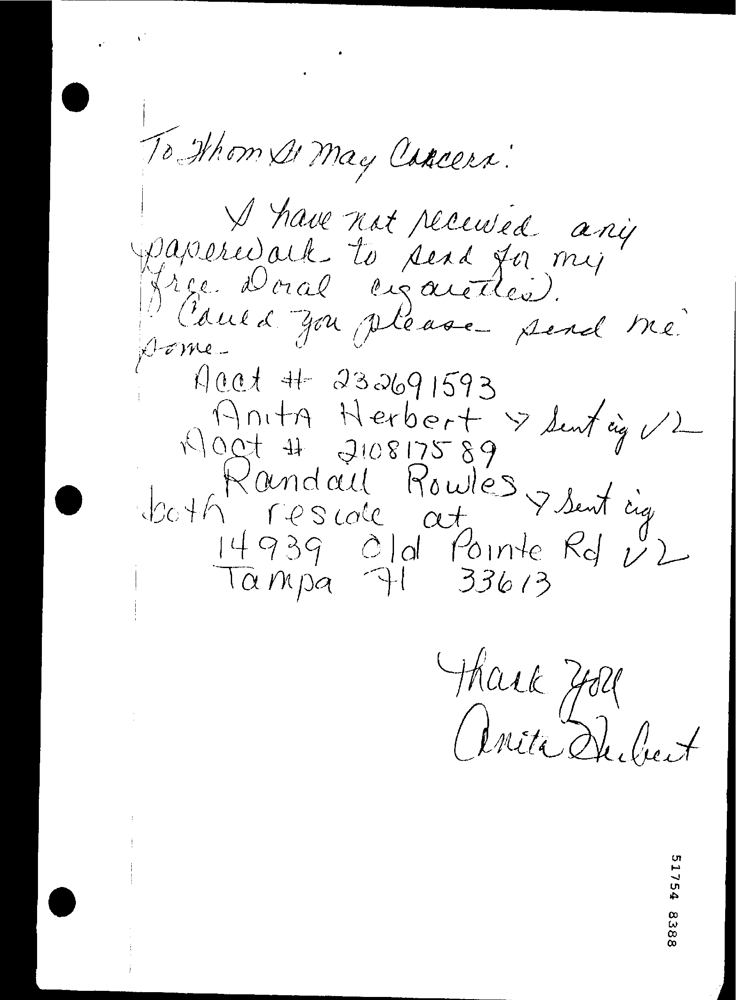 To Whom It May Concern:
I have not received any
paperwork to send for my
free Doral cigarettes.
Could you please send me
some.
Acct # 232691593
Anita Herbert → Sent cig √2
Acct # 210817589
Randall Rowles → Sent cig
both reside at
14939 Old Pointe Rd √2
Tampa Fl 33613
Thank You
Anita Herbert
51754 8388